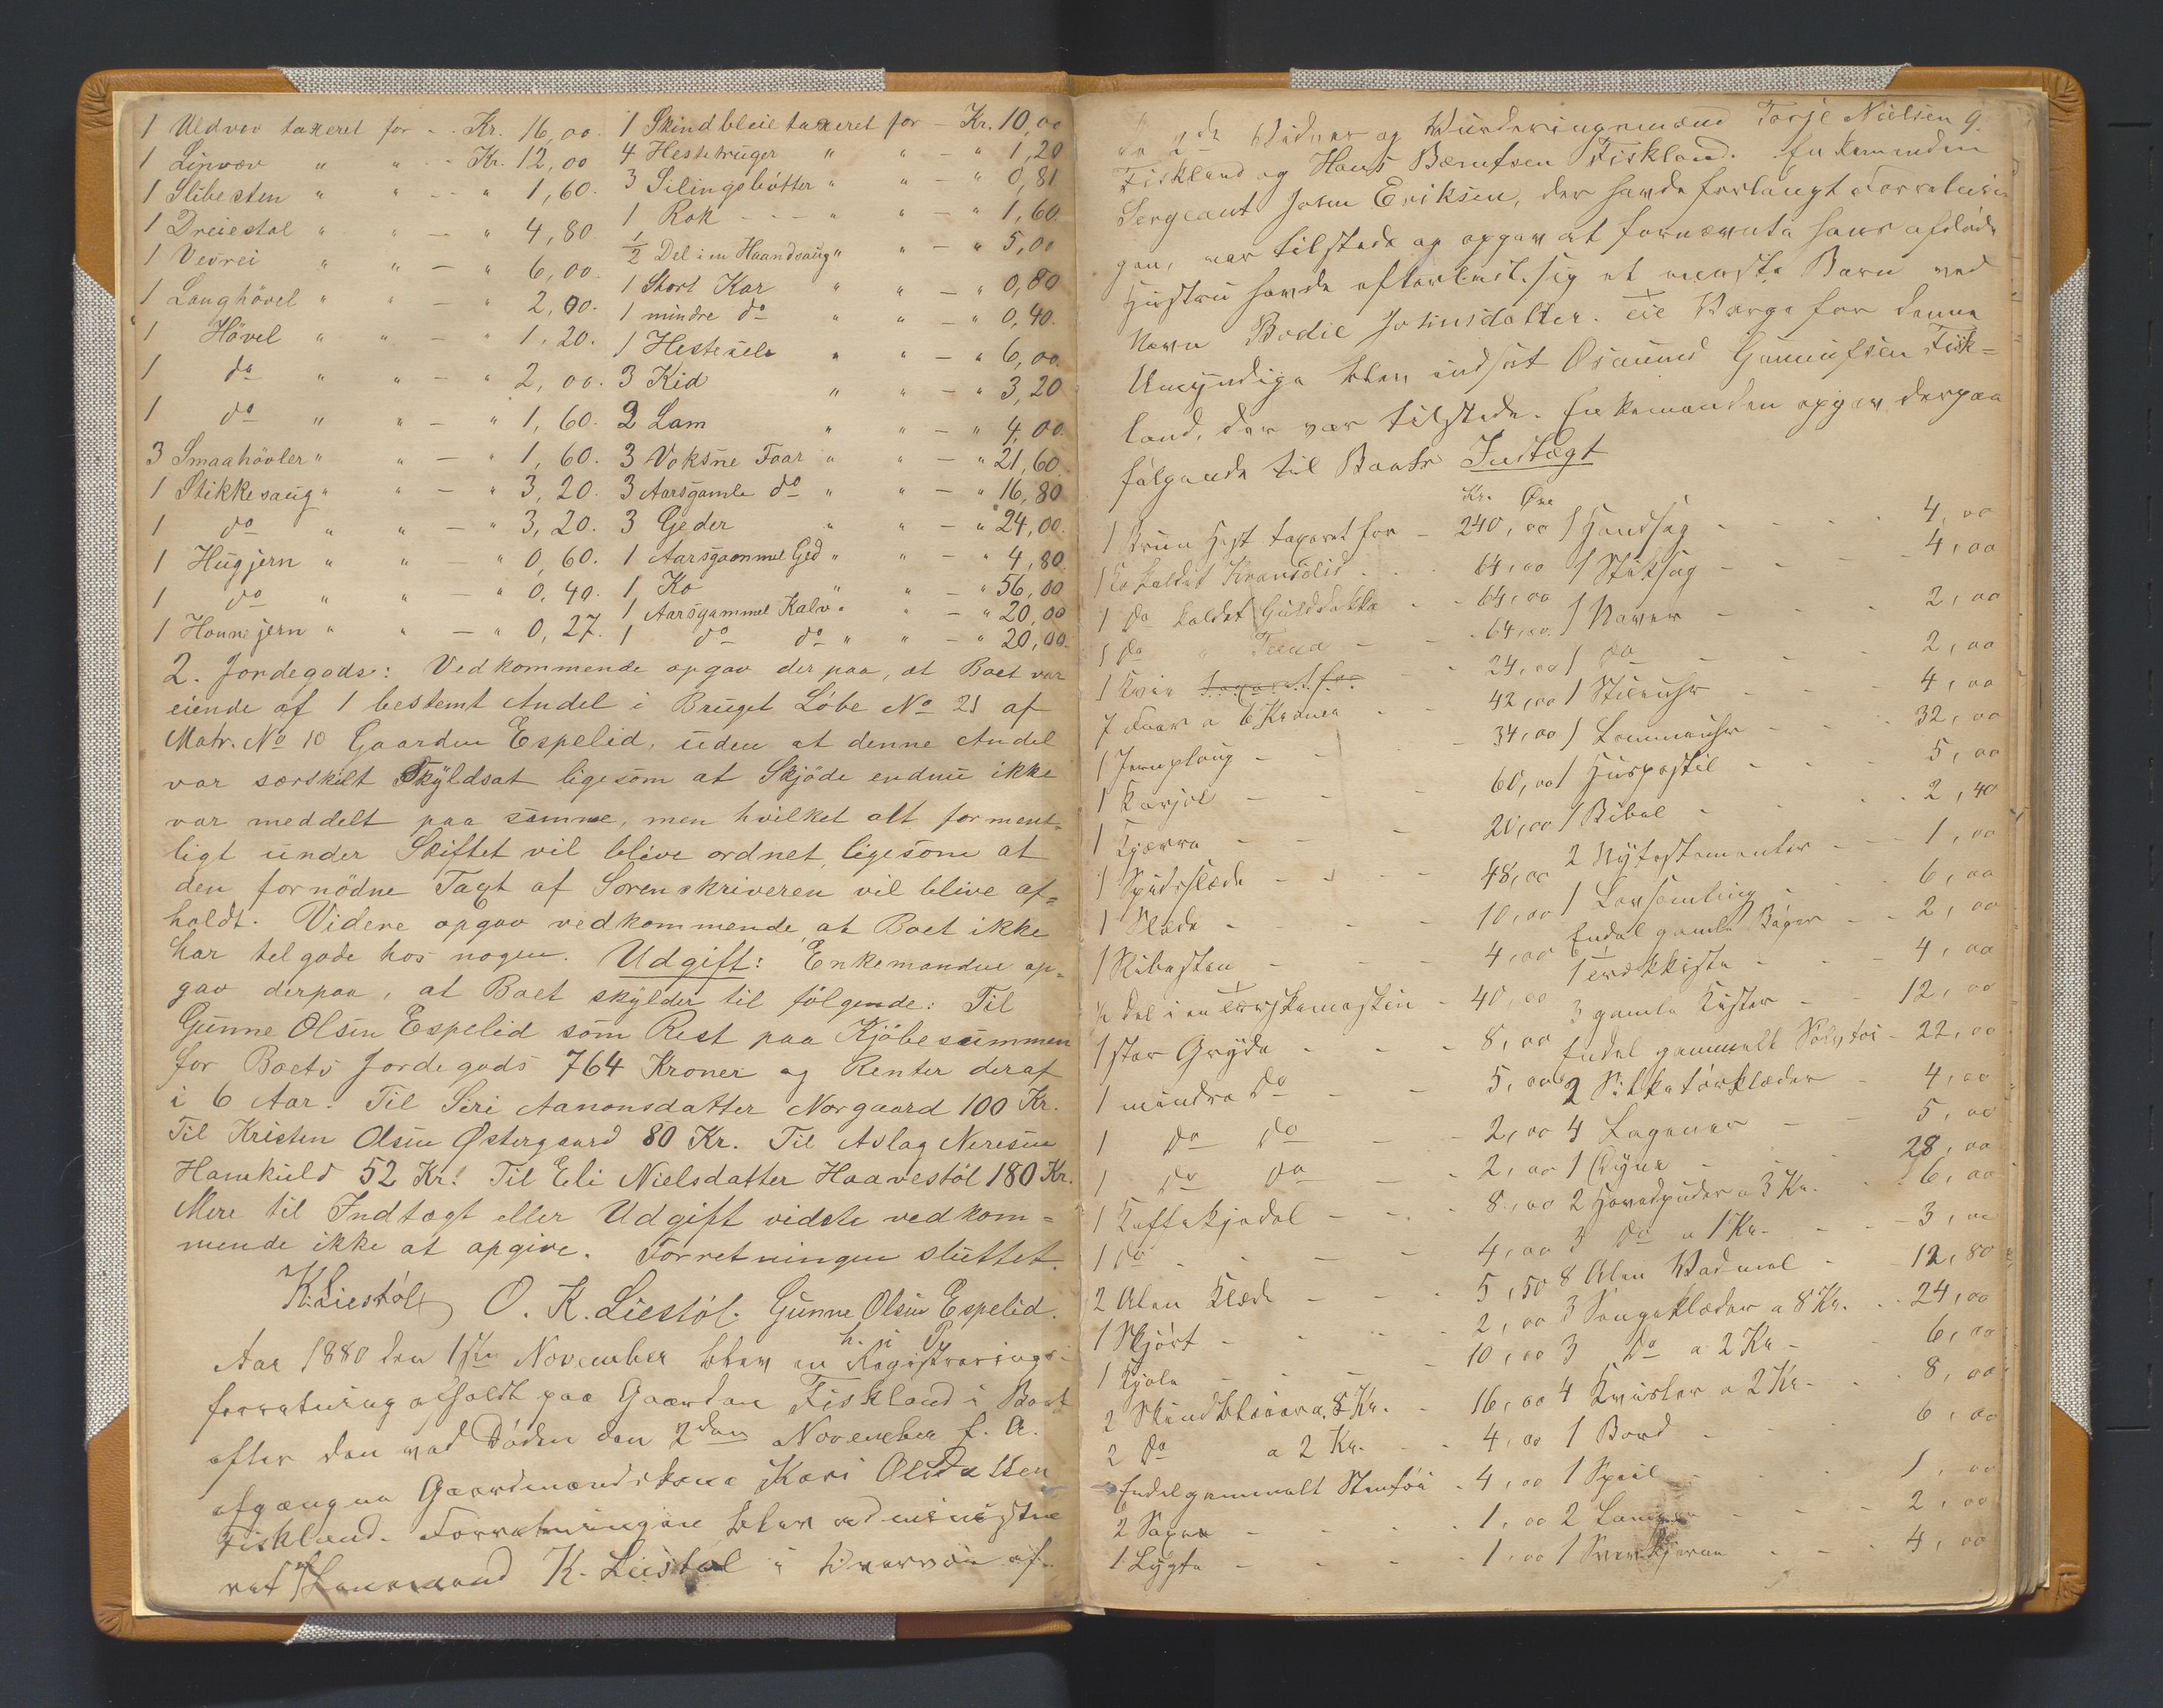 1 Uldvev taxeret for - - Kr. 16,00.
1 Linvæv " " - - Kr. 12,00
1 Slibesten " " - - " 1,60.
1 Dreiestol " " - " 4,80
1 Vevrei " " — " 6,00.
1 Langhövel " " — " 2,00.
1 Hövel " " — " 1,20.
1 do " " — " 2,00.
1 do " " — " 1,60.
3 Smaahövler " " — " 1,60.
1 Stikksaug " " — " 3,20.
1 do " " — " 3,20.
1 Hugjern " " — " 0,60.
1 do " " — " 0,40.
1 Honnejern " " — " 0,27.
1 Skindbleie taxeret for — Kr. 10,00
4 Hestetruger " " — " 1,20
3 Silingsbötter " " — " 0,81
1 Rok - - - " " — " 1,60.
1/2 Del i en Haandsaug " " — " 5,00
1 Stort Kar " " — " 0,80
1 mindre do " " — " 0,40.
1 Hestesele " " — " 6,00.
3 Kid " " — " 3,20
2 Lam " " — " 4,00.
3 Voksne Faar " " — " 21,60
3 Aarsgamle do " " — " 16,80
3 Geder " " — " 24,00.
1 Aarsgammel Ged " " — " 4,80.
1 Ko " " — " 56,00
1 Aarsgammel Kalv " " — " 20,00
1 do do " " — " 20,00.
2. Jordegods: Vedkommende opgav derpaa, at Boet var
eiende af 1 bestemt Andel i Bruget Löbe No 21 af
Matr. No 10 Gaarden Espelid, uden at denne Andel
var særskilt Skyldsat ligesom at Skjöde endnu ikke
var meddelt paa samme, men hvilket alt forment-
ligt under Skiftet vil blive ordnet, ligesom at
den fornödne Taxt af Sorenskriveren vil blive af=
holdt. Videre opgav vedkommende, at Boet ikke
har tilgode hos nogen. Udgift: Enkemanden op=
gav derpaa, at Boet skylder til fölgende: Til
Gunne Olsen Espelid som Rest paa Kjöbesummen
for Boets Jordegods 764 Kroner og Renter deraf
i 6 Aar. Til Siri Aanonsdatter Norgaard 100 Kr.
Til Kristen Olsen Østergaard 80 Kr. Til Aslag Neresen
Hamkuld 52 Kr. Til Eli Nielsdatter Haavestöl 180 Kr.
Mere til Indtægt eller Udgift vidste vedkom=
mende ikke at opgive. Forretningen sluttet.
K. Liestöl O. K. Liestöl. Gunne Olsen Espelid.
h. p. P.
Aar 1880 den 1ste November blev en Registrerings-
forretning afholdt paa Gaarden Fiskland i Boet
efter den ved Döden den 2den November f. A.
afgangne Gaardmandskone Kari Olsdatter
Fiskland. Forretningen blev administre
ret Lensmand K. Liestöl i Overvær af
Vidner og Vurderingsmænd Torje Nielsen g.
Fiskland og Hans Berntsen Fiskland. Enkemanden
Sergeant John Eriksen, der havde forlangt Forretnin
gen, var tilstede og opgav at fornævnte hans afdöde
Hustru havde efterladt sig et eneste Barn ved
Navn Bodil Johnsdatter. Til Værge for denne
Umyndige blev indsat Osmund Gunnufsen Fisk=
land, der var tilstede. Enkemanden opgav derpaa
fölgende til Boets Indtægt
Kr. Øre
1 Brun Hest taxeret for — 240,00
1 Ko kaldet Kransolid - - 64,00
1 do kaldet Guldbakka - - 64,00
1 do " - - 64,00.
1 Kvie taxeret for - 24,00
7 Faar a 6 Kroner - - 42,00
1 Jernploug - - - 34,00
1 Karjol — - - 60,00
1 Kjærre - - - 20,00
1 Spidsslæde - - - 48,00
1 Slæde - - - 10,00
1 Slibesten - - - 4,00
1/2 Del i en Tærskemaskin - 40,00
1 stor Gryde - - - 8,00
1 mindre do - - - 5,00
1 do do - - 2,00
1 do do - - 2,00
1 Kaffekjedel - - - 8,00
1 do - - - 4,00
2 Alen Klæde - - - 5,50
1 Skjört - - - 2,00
1 Kjole - - - 10,00
2 Skindbleier a 8 Kr. - 16,00
2 do a 2 Kr. - - 4,00
Endel gammelt Stentöi - 4,00
2 - - - 1,00
1 Lygte - - - 1,00
1 Haandsag - - - 4,00
1 Stiksag - - - 4,00
1 Naver - - - 2,00
1 do - - - 2,00
1 Stueuhr - - - 4,00
1 Lommeuhr - - - 32,00
1 Huspostil - - - 5,00
1 Bibel - - - 2,40
2 Nytestamenter - - 1,00
1 Lovsamling - - - 6,00
Endel gamle Böger - - 2,00
1 - - - 4,00
3 gamle Kister - - 12,00
Endel gammelt Sölvtöi - 22,00
2 Silketörklæder - 4,00
4 Lagener - - 5,00
1 Dyne - - - 28,00
2 Hovedpuder a 3 Kr. - 6,00
3 do a 1 Kr. - - 3,00
8 Alen Vadmel - - 12,80
3 Sengeklæder a 8 Kr. - 24,00
3 do a 2 Kr - 6,00
4 a 2 Kr. - - 8,00
1 Bord - - 6,00
1 Speil - - - 1,00
2 - - 2,00
1 - - 4,00